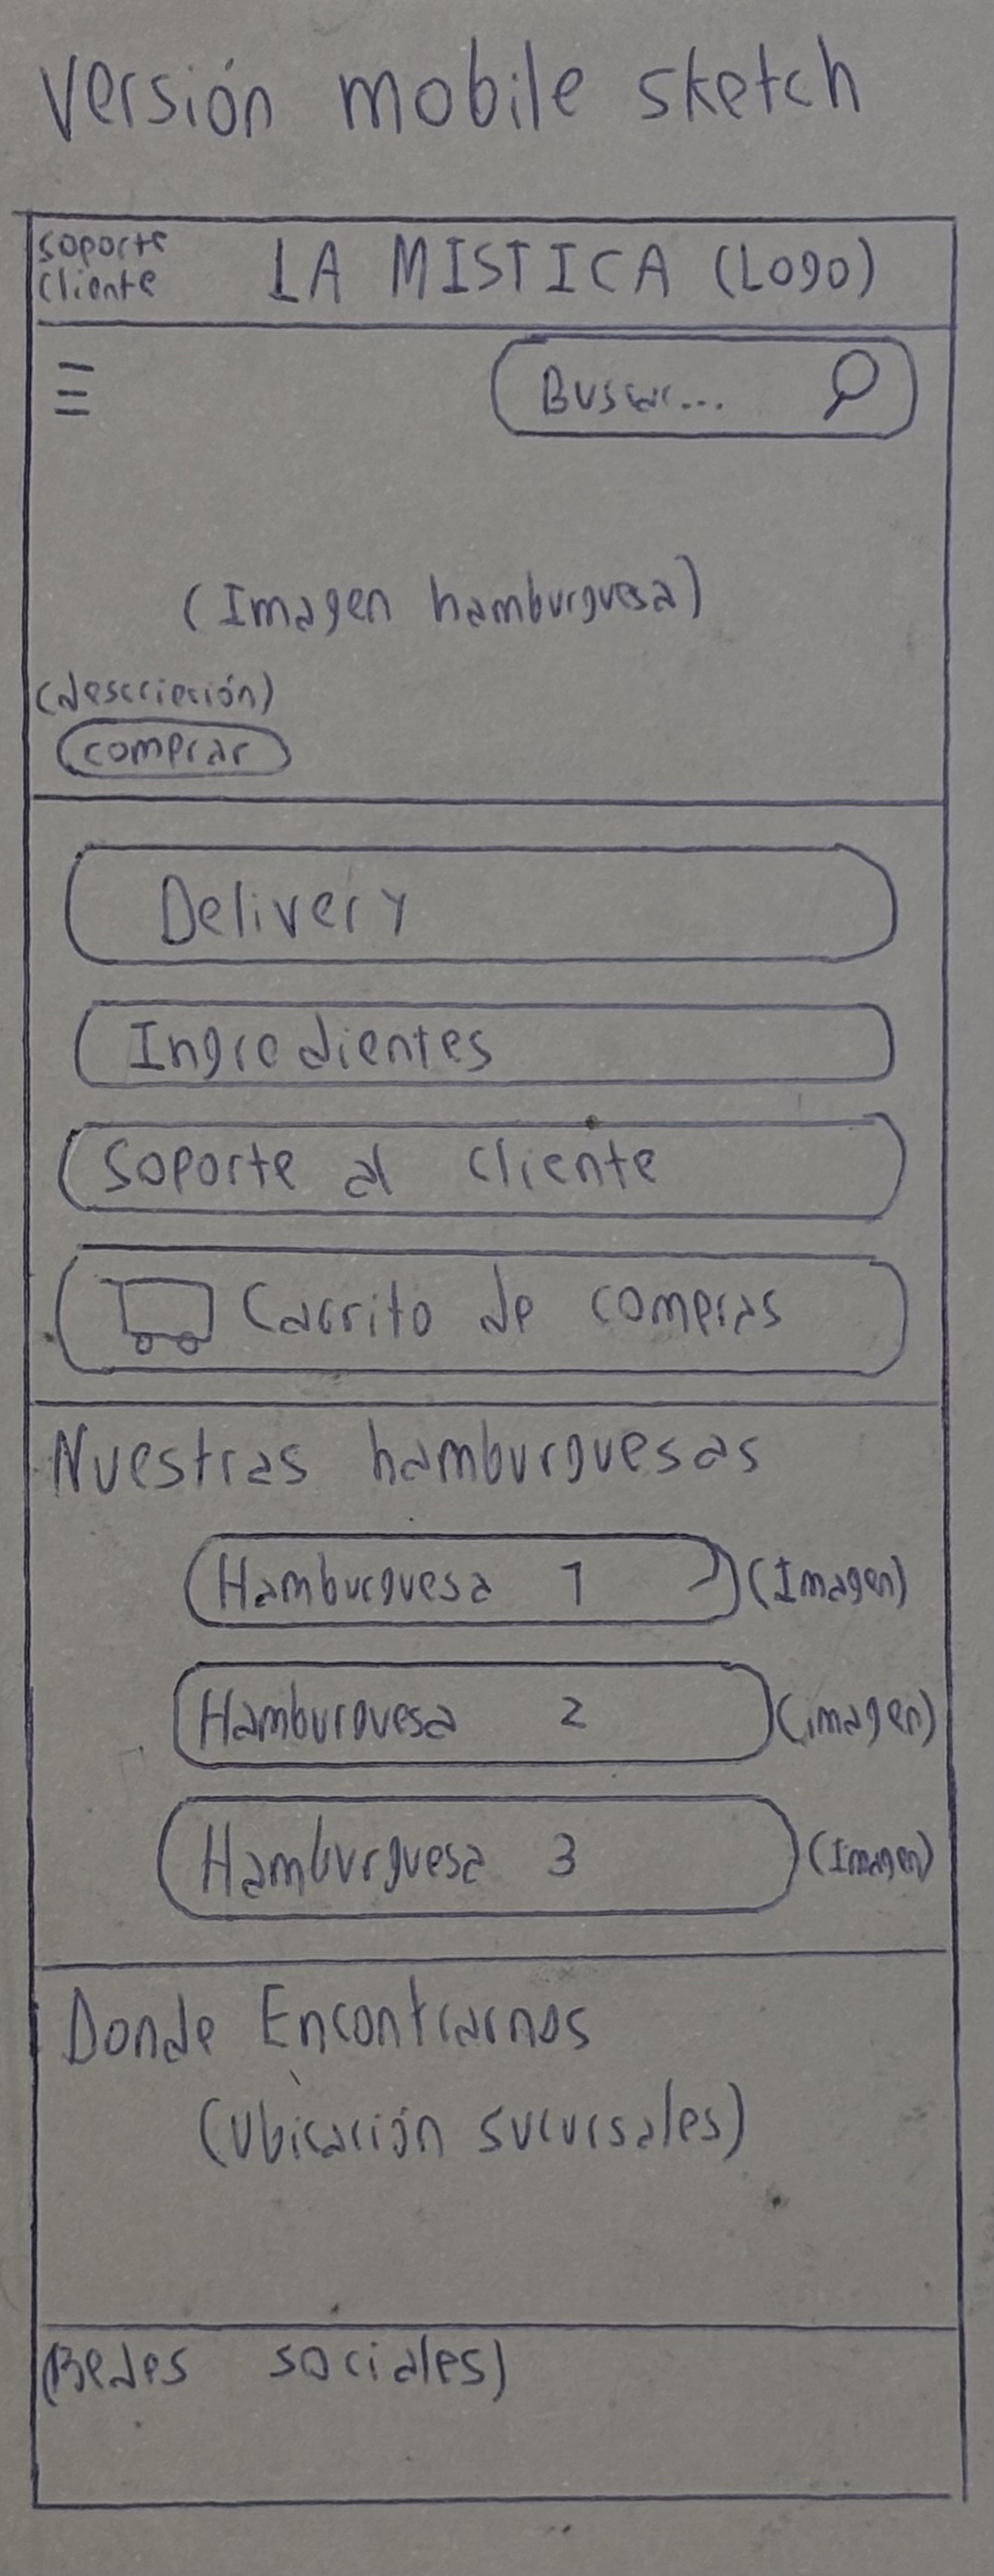 Versión mobile sketch
soporte
cliente
LA MISTICA (Logo)
Buscar...
(Imagen hamburguesa)
(descripción)
comprar
Delivery
Ingredientes
Soporte al cliente
Carrito de compras
Nuestras hamburguesas
Hamburguesa 1 (Imagen)
Hamburguesa 2 (imagen)
Hamburguesa 3 (Imagen)
Donde Encontrarnos
(Ubicación sucursales)
(Redes sociales)